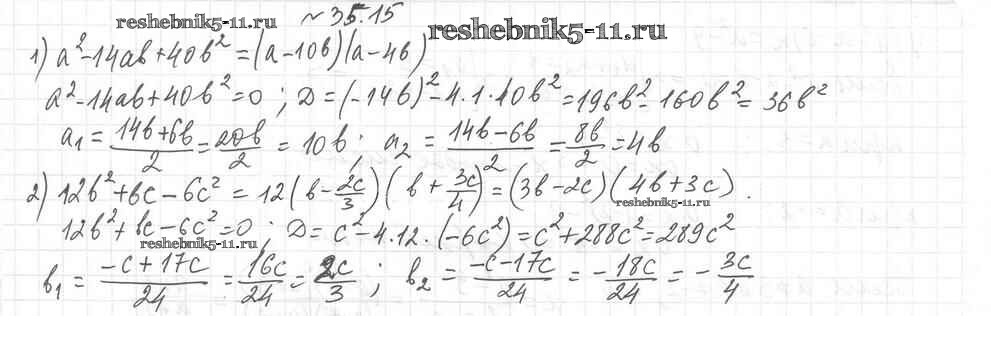 № 35.15
reshebnik5-11.ru
reshebnik5-11.ru
1) a²-14ab+40b²=(a-10b)(a-4b)
a²-14ab+40b²=0 ; D=(-14b)²-4·1·40b²=196b²-160b²=36b²
a₁=(14b+6b)/2=20b/2=10b; a₂=(14b-6b)/2=8b/2=4b
2) 12b²+bc-6c²=12(b-2c/3)(b+3c/4)=(3b-2c)(4b+3c).
reshebnik5-11.ru
12b²+bc-6c²=0; D=c²-4·12·(-6c²)=c²+288c²=289c²
reshebnik5-11.ru
b₁=(-c+17c)/24=16c/24=2c/3; b₂=(-c-17c)/24=-18c/24=-3c/4